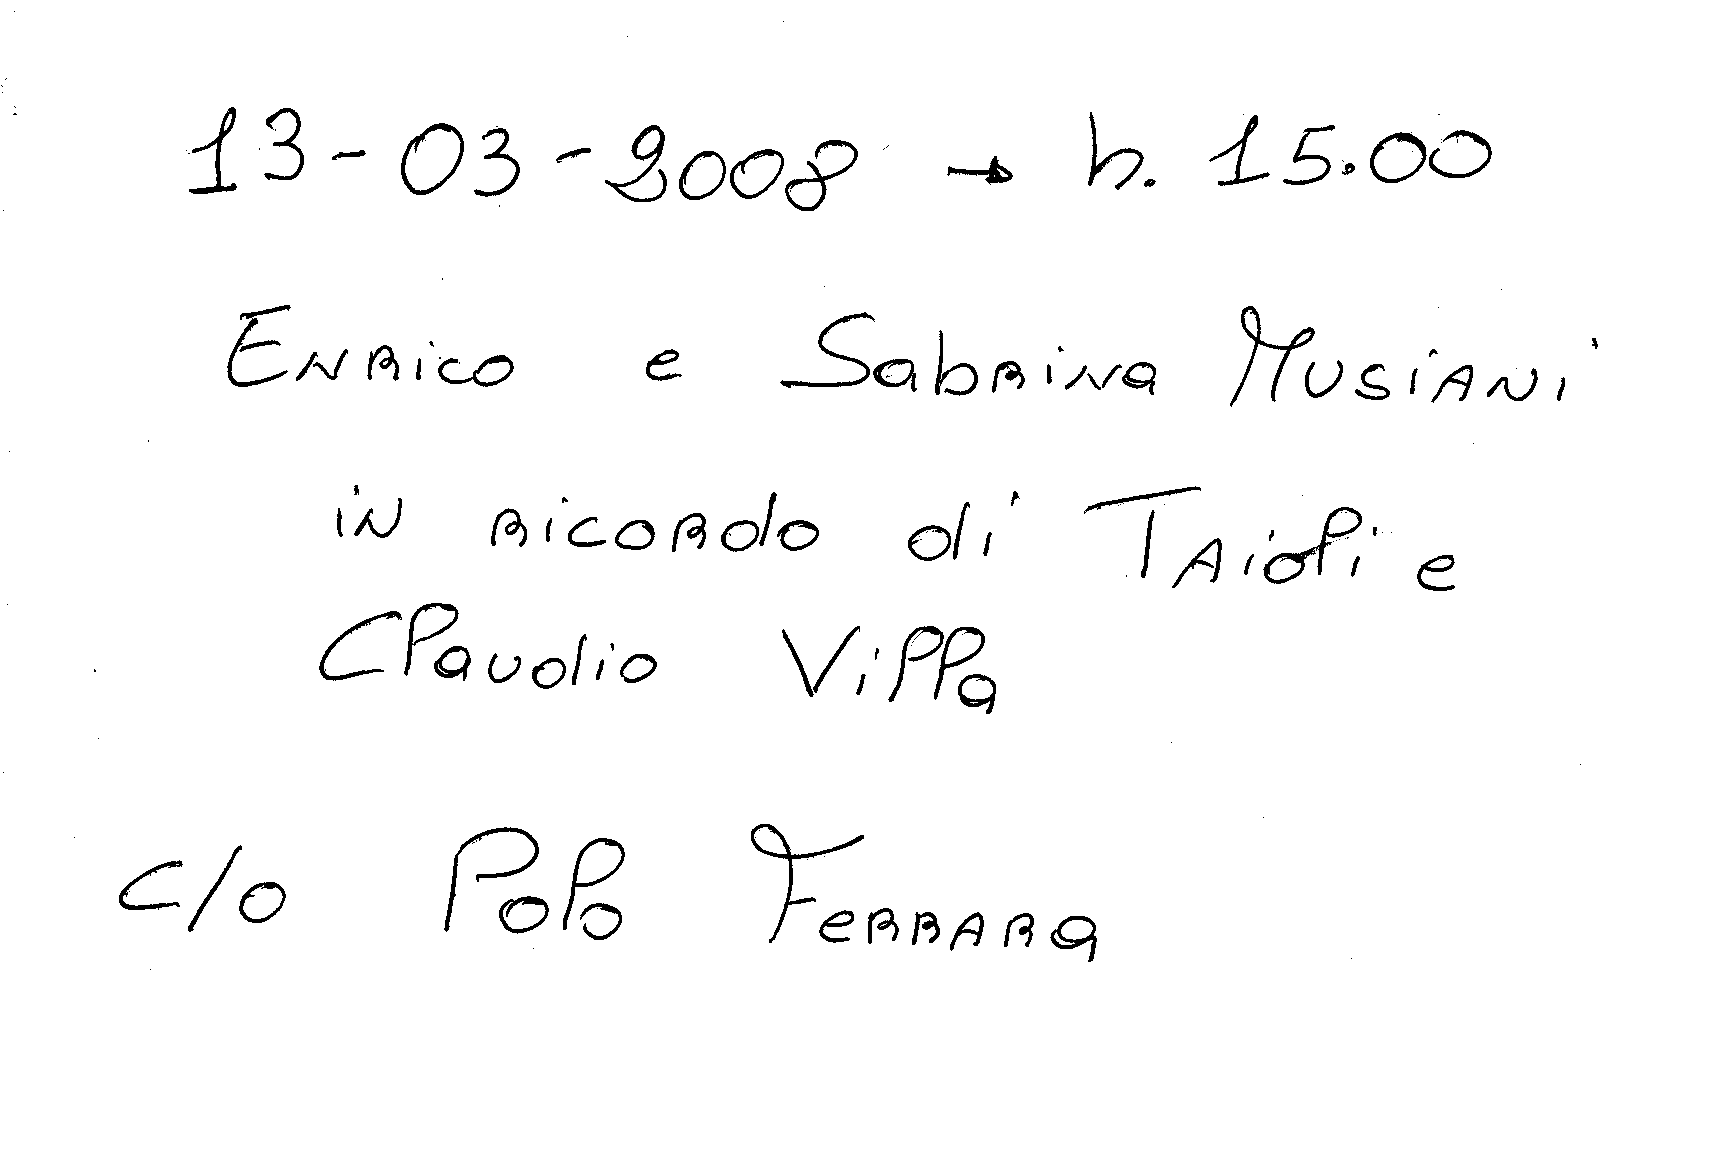 13-03-2008 → h. 15.00
Enrico e Sabrina Musiani
in ricordo di Taioli e
Claudio Villa
c/o Polo Ferrara